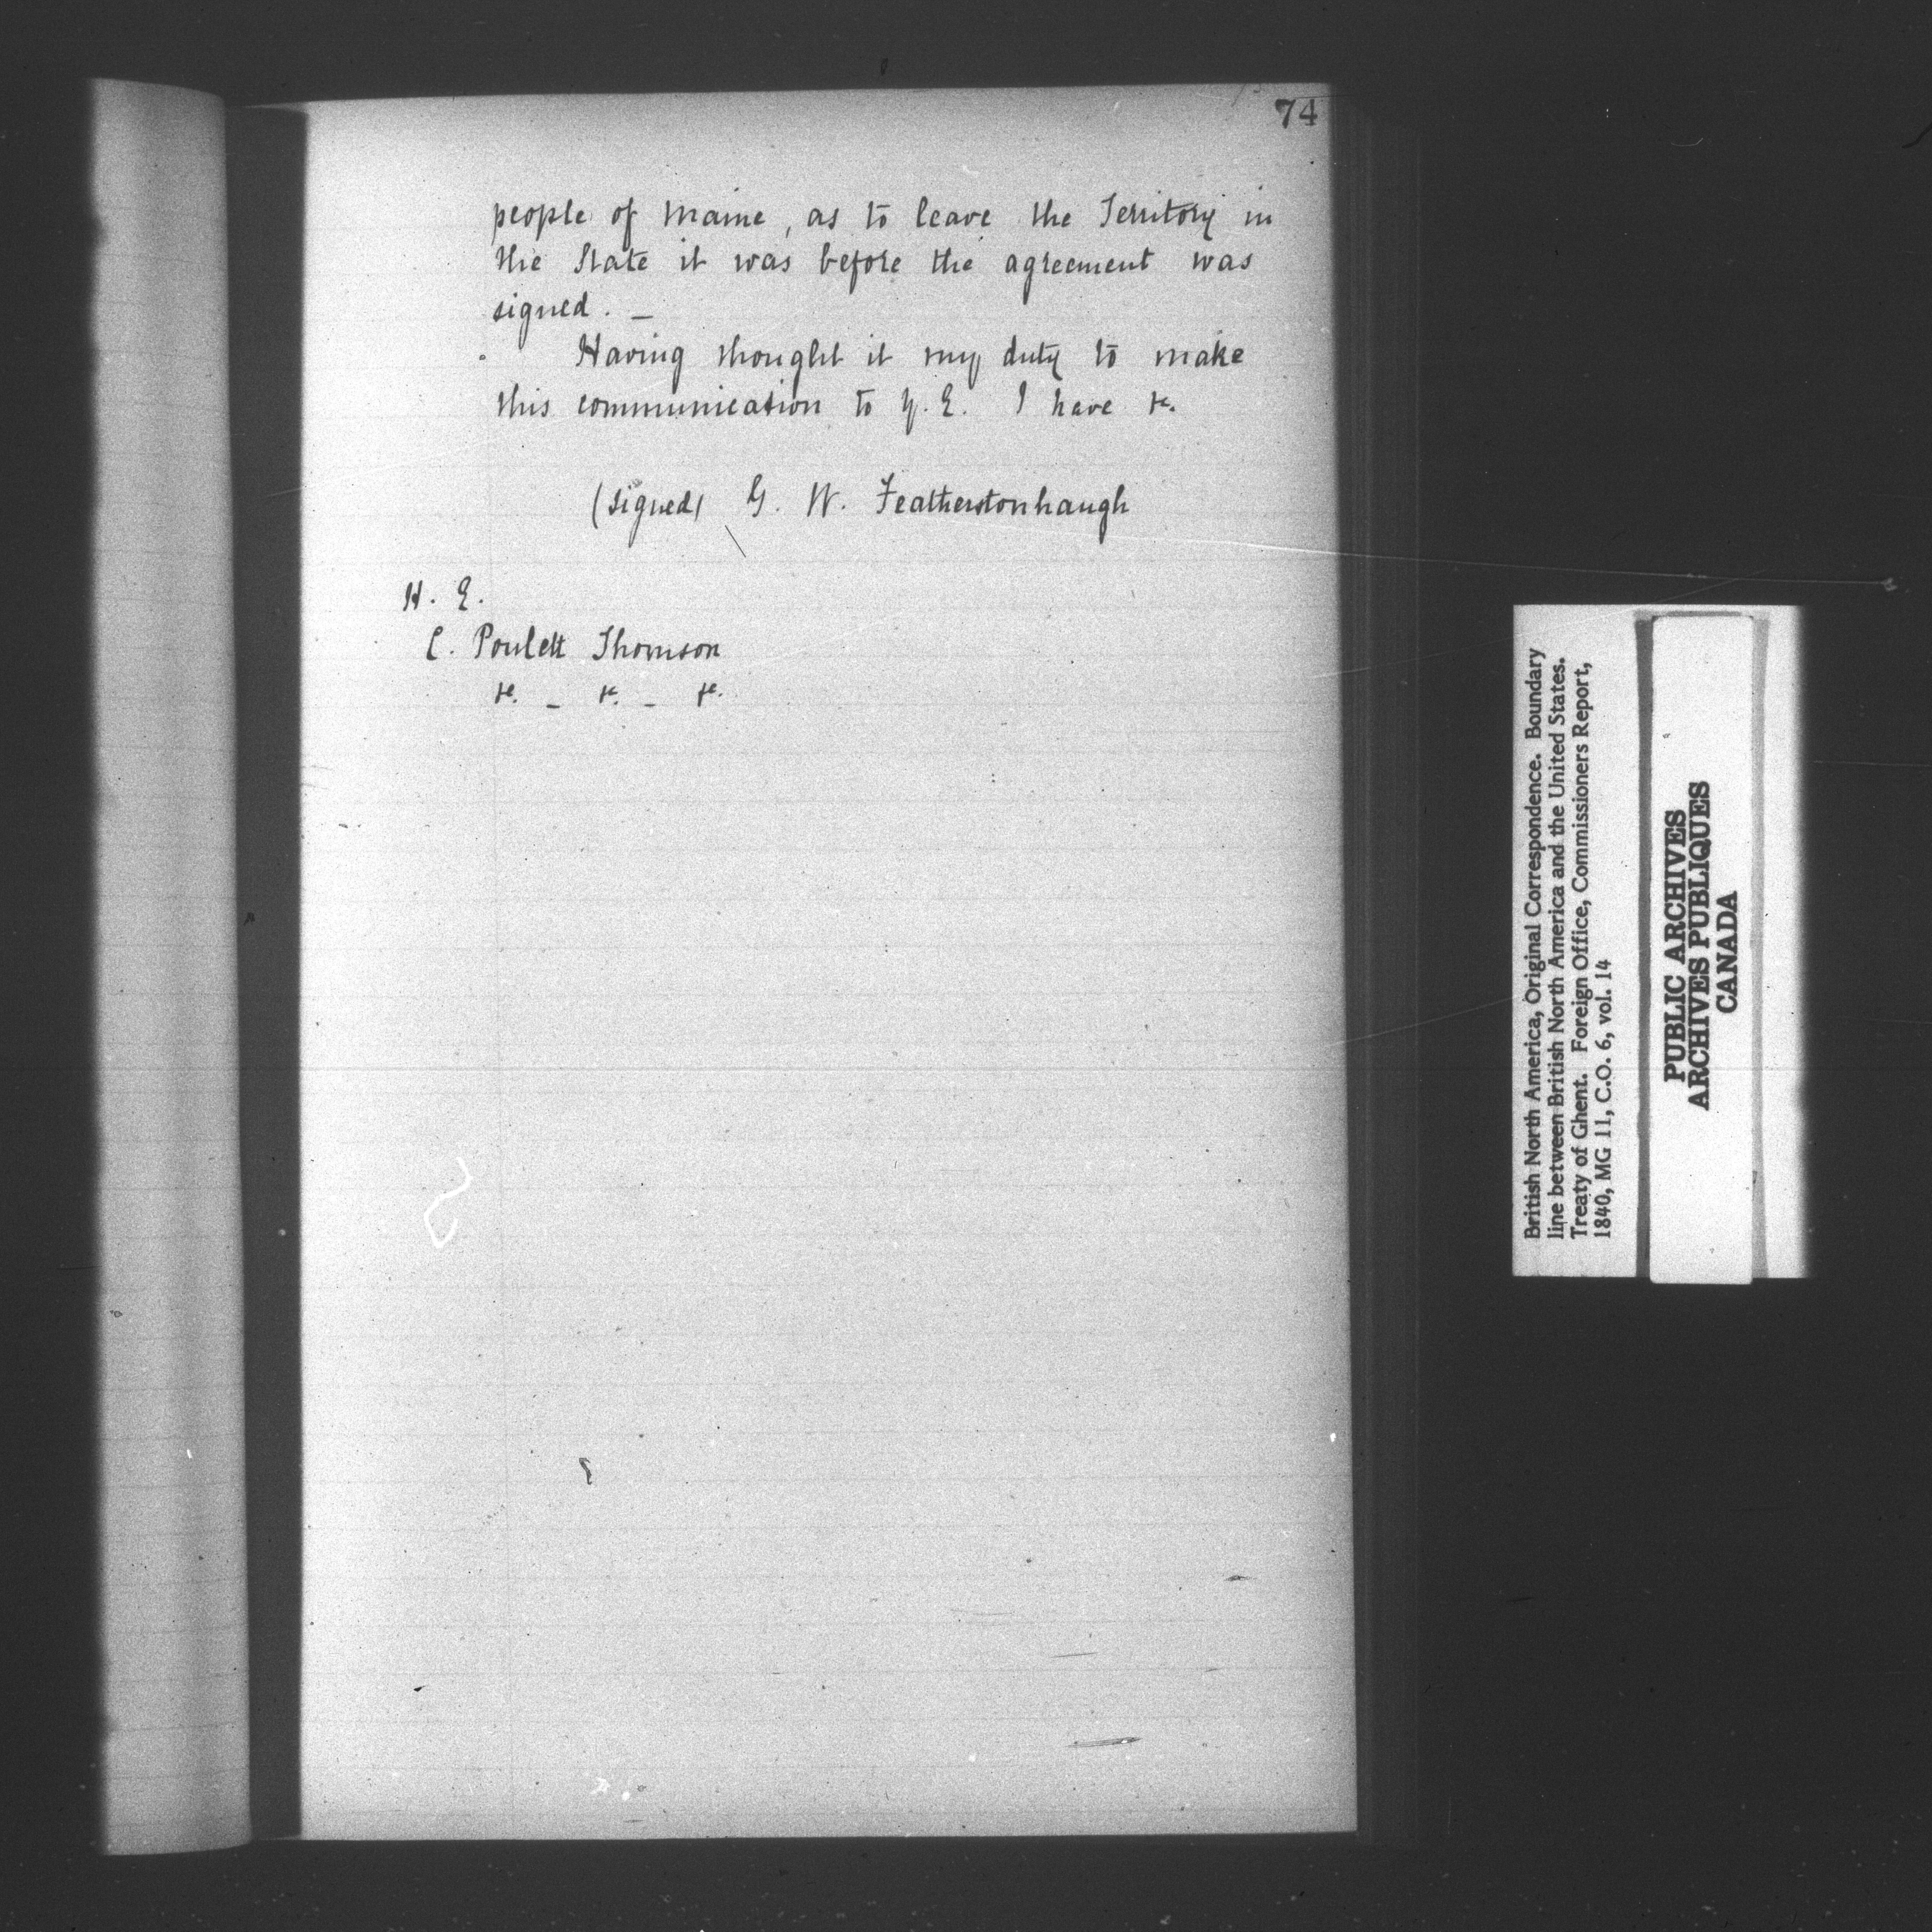 74
people of Maine, as to leave the Territory in
the State it was before the agreement was
signed. _
Having thought it my duty to make
this communication to Y. E. I have &c.
(signed) G. W. Featherstonhaugh
H. E.
C. Poulett Thomson
&c. _ &c. _ &c.
British North America, Original Correspondence. Boundary
line between British North America and the United States.
Treaty of Ghent. Foreign Office, Commissioners Report,
1840, MG 11, C.O. 6, vol. 14
PUBLIC ARCHIVES
ARCHIVES PUBLIQUES
CANADA